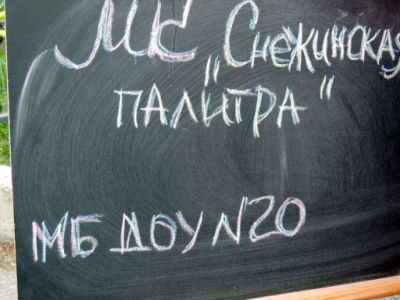 МК „Снежинская
ПАЛИТРА"
МБ ДОУ N20